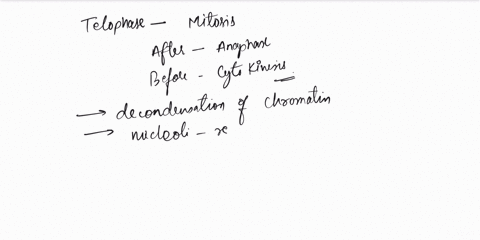 Telophase - Mitosis
After - Anaphase
Before - Cyto Kinesis
→ decondensation of chromatin
→ nucleoli - re